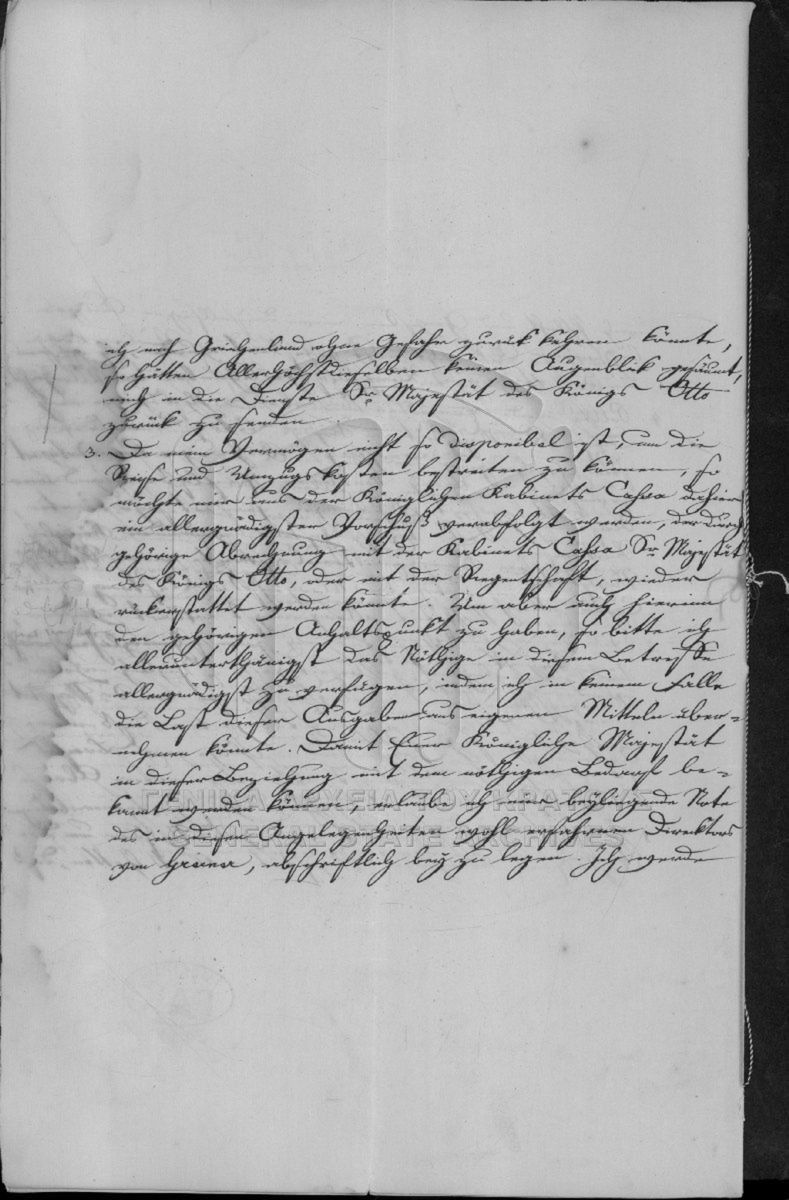 ich nach Griechenland ohne Gefahr zurück kehren könnte,
so hätten Allerhöchstdieselben keinen Augenblick gesäumt,
mich in die Dienste Sr. Majestät des Königs Otto
zurück zu senden.
3. Da mein Vermögen nicht so disponibel ist, um die
Reise und Umzugskosten bestreiten zu können, so
möchte mir aus der Königlichen Kabinets Cassa dahier
ein allergnädigster Vorschuß verabfolgt werden, der durch
gehörige Abrechnung mit der Kabinets Cassa Sr. Majestät
des Königs Otto, oder mit der Regentschaft, wieder
rückerstattet werden könnte. Um aber auch hierinn
den gehörigen Anhaltspunkt zu haben, so bitte ich
allerunterthänigst das Nöthige in diesem Betreffe
allergnädigst zu verfügen, indem ich in keinem Falle
die Last dieser Ausgaben aus eigenen Mitteln über-
nehmen könnte. Damit Euer Königliche Majestät
in dieser Beziehung mit dem nöthigen Bedarf be-
kannt werden können, erlaube ich mir beyliegende Note
des in diese Angelegenheiten wohl erfahrnen Direktors
von Greiner, abschriftlich bey zu legen. Ich werde
ΓΕΝΙΚΑ ΑΡΧΕΙΑ ΤΟΥ ΚΡΑΤΟΥΣ
GENERAL STATE ARCHIVES